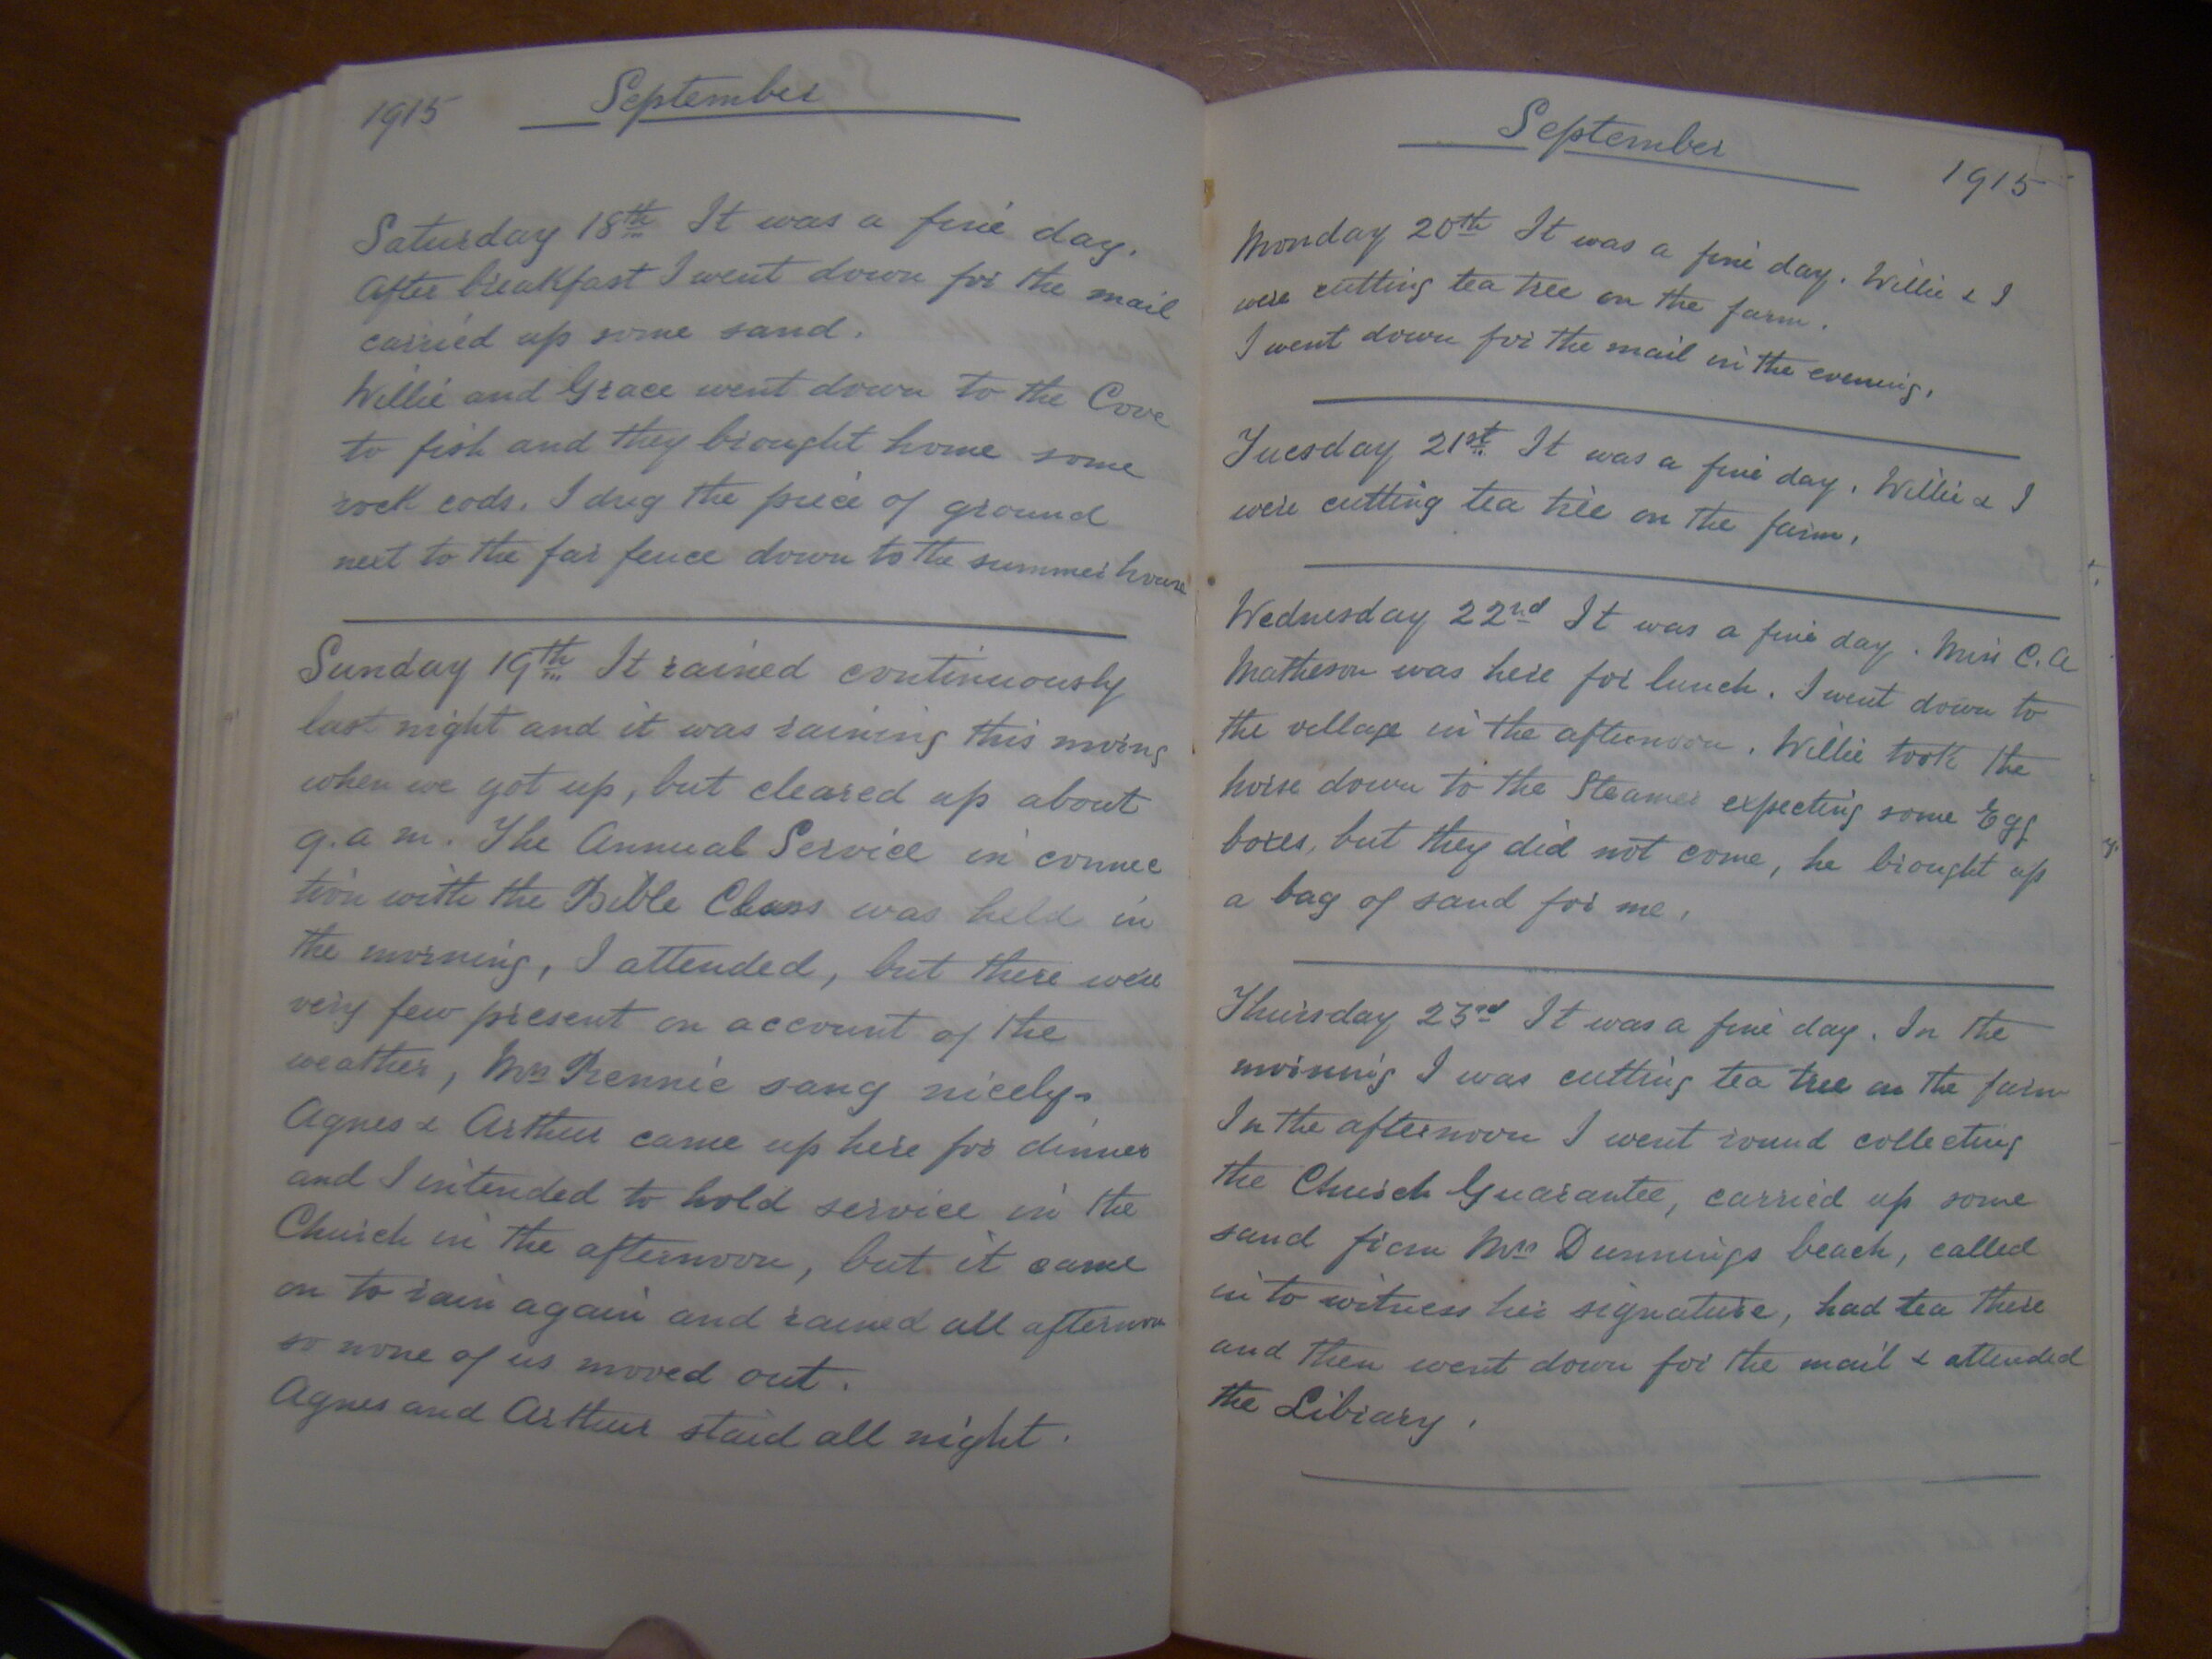 1915 September
Saturday 18th It was a fine day.
After breakfast I went down for the mail
carried up some sand.
Willie and Grace went down to the Cove
to fish and they brought home some
rock cods. I dug the piece of ground
next to the far fence down to the summer house
Sunday 19th It rained continuously
last night and it was raining this morng
when we got up, but cleared up about
9.a.m. The Annual Service in connec
tion with the Bible Class was held in
the morning, I attended, but there were
very few present on account of the
weather, Mrs Rennie sang nicely.
Agnes & Arthur came up here for dinner
and I intended to hold service in the
Church in the afternoon, but it came
on to rain again and rained all afternoon
so none of us moved out.
Agnes and Arthur staid all night.
September 1915
Monday 20th It was a fine day. Willie & I
were cutting tea tree on the farm.
I went down for the mail in the evening.
Tuesday 21st It was a fine day. Willie & I
were cutting tea tree on the farm.
Wednesday 22nd It was a fine day. Miss C. A
Matheson was here for lunch. I went down to
the village in the afternoon. Willie took the
horse down to the Steamer expecting some Egg
boxes, but they did not come, he brought up
a bag of sand for me.
Thursday 23rd It was a fine day. In the
morning I was cutting tea tree on the farm
In the afternoon I went round collecting
the Church Guarantee, carried up some
sand from Mrs Dunnings beach, called
in to witness her signature, had tea there
and then went down for the mail & attended
the Library.